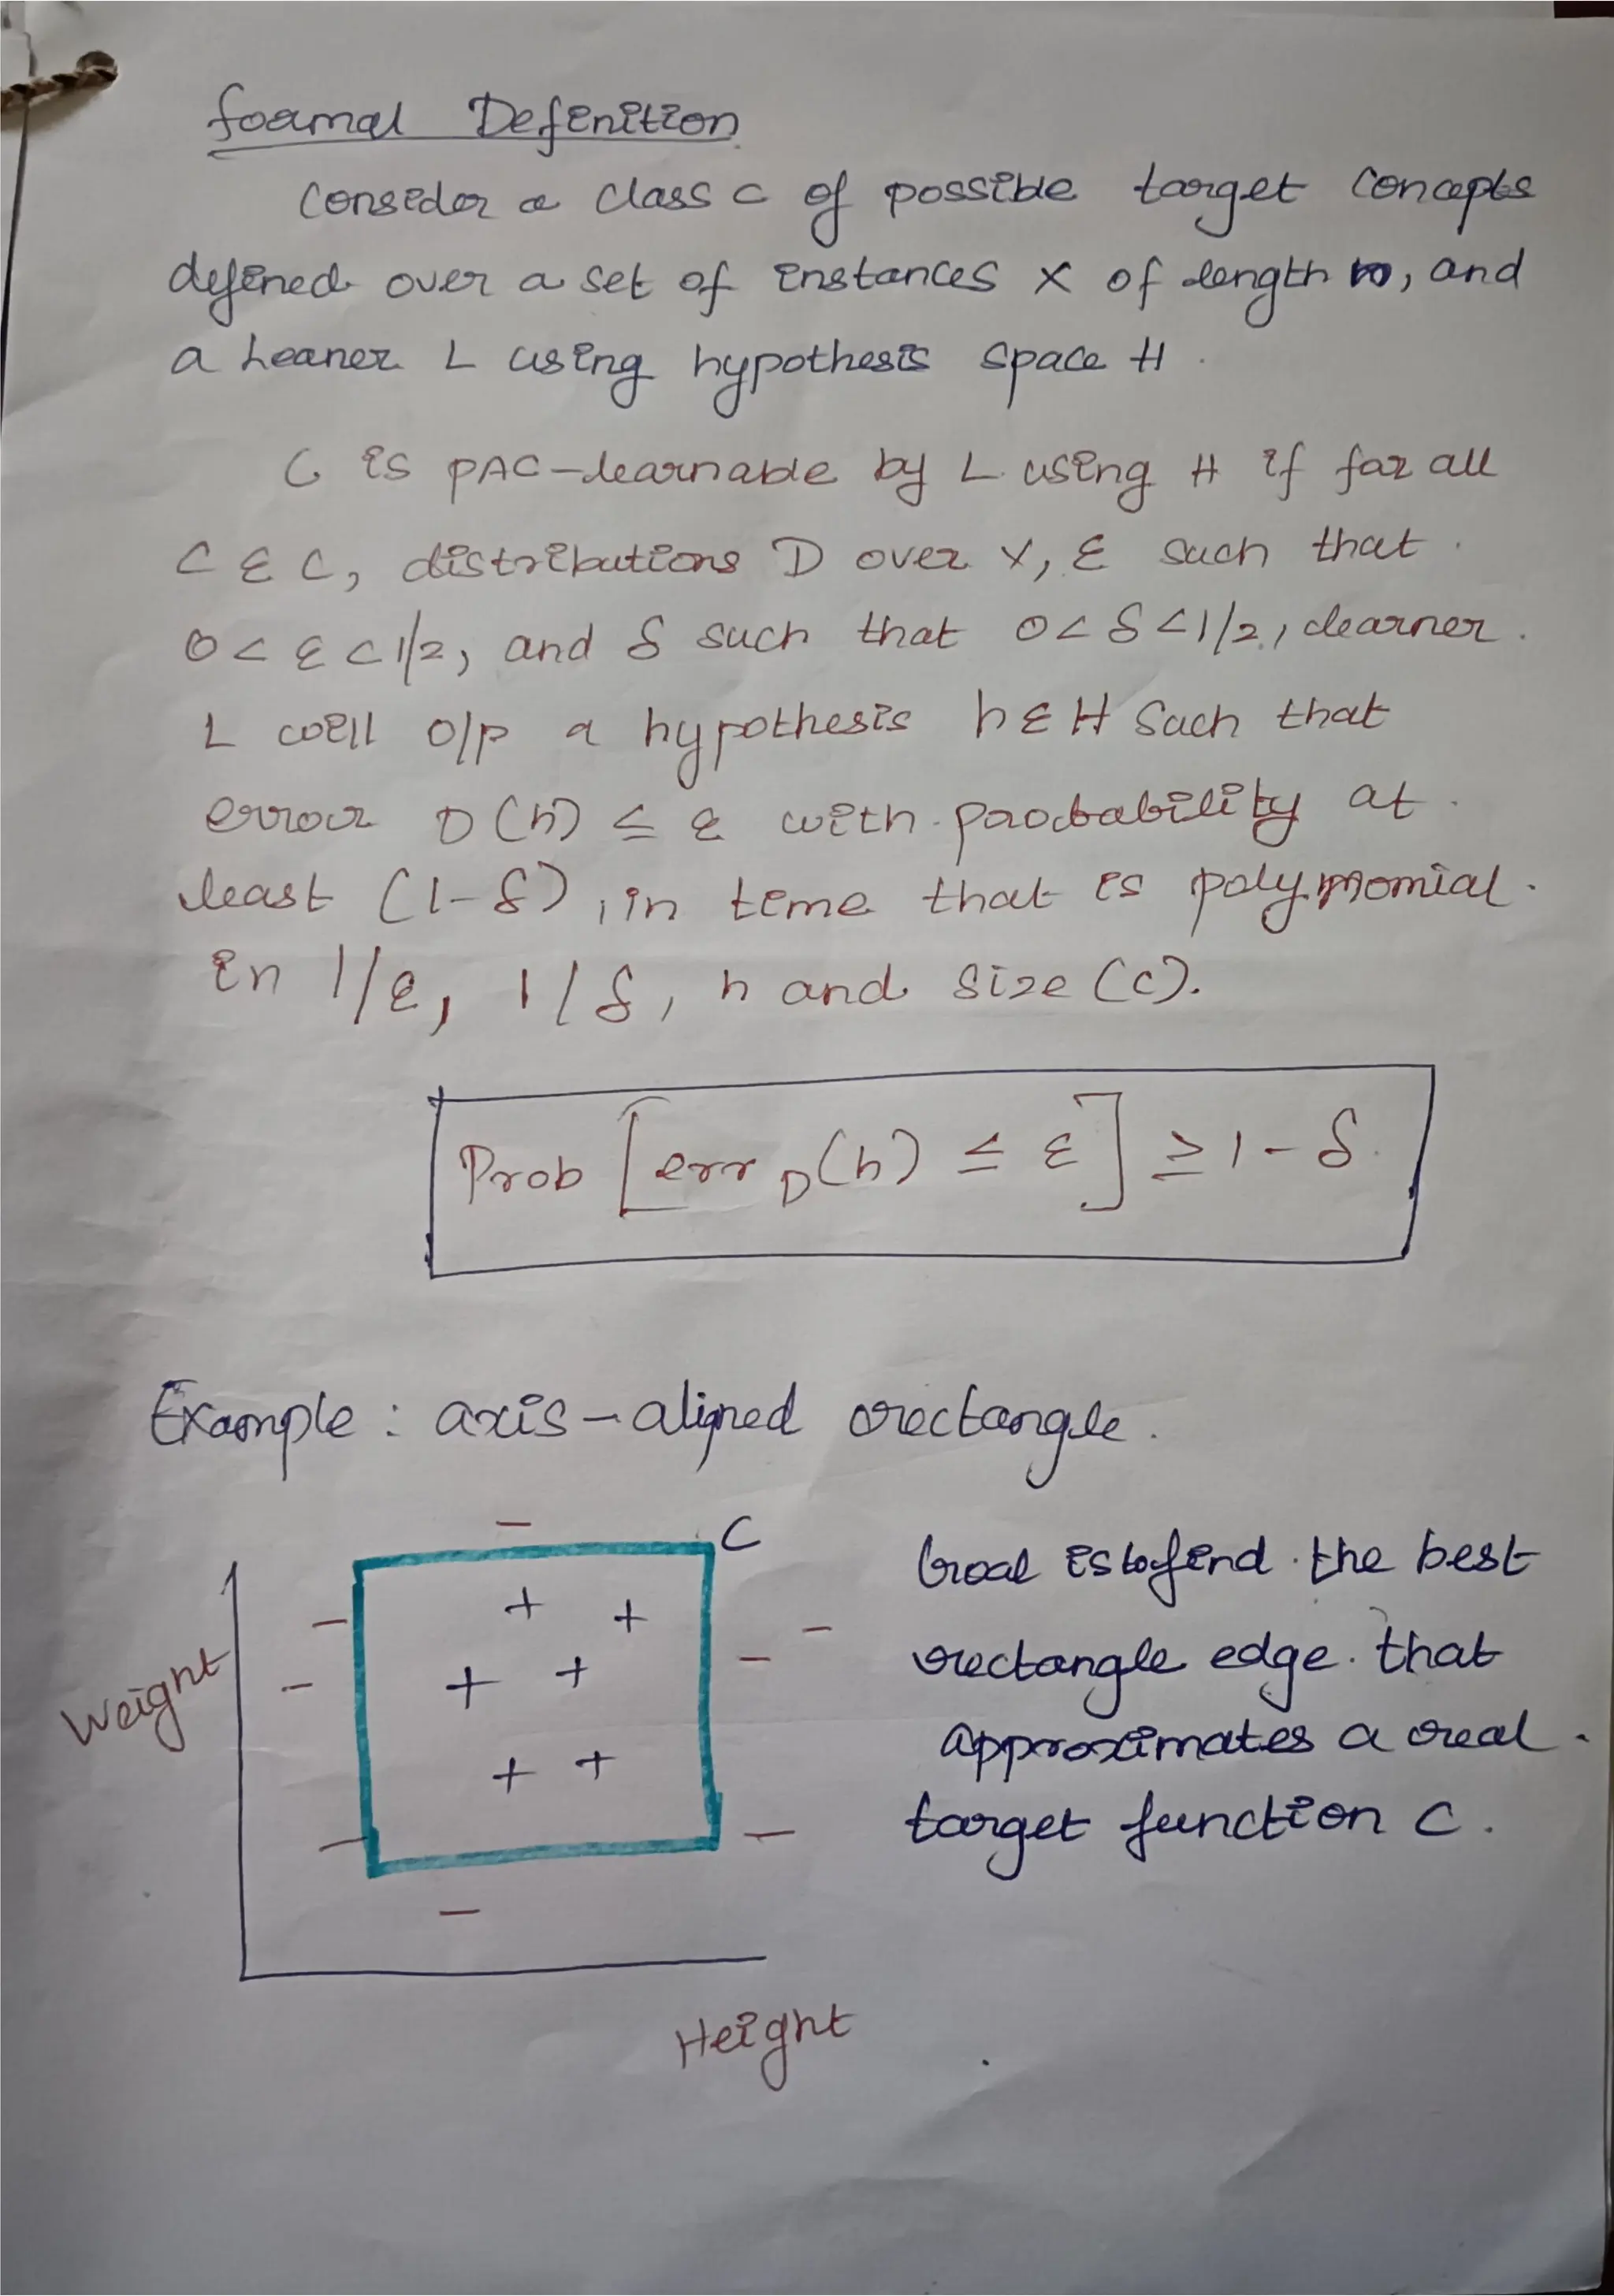 formal Definition
Consider a class C of possible target concepts
defined over a set of instances X of length n, and
a Leaner L using hypothesis space H.
C is PAC-learnable by L using H if for all
C ε C, distributions D over X, ε such that
0 < ε < 1/2, and δ such that 0 < δ < 1/2, learner
L will o/p a hypothesis h ε H such that
error D(h) ≤ ε with probability at
least (1-δ), in time that is polynomial
in 1/ε, 1/δ, n and size (c).
Prob [err D(h) ≤ ε] ≥ 1-δ
Example: axis-aligned rectangle.
C
Goal is to find the best
rectangle edge that
approximates a real
target function C.
Weight
Height